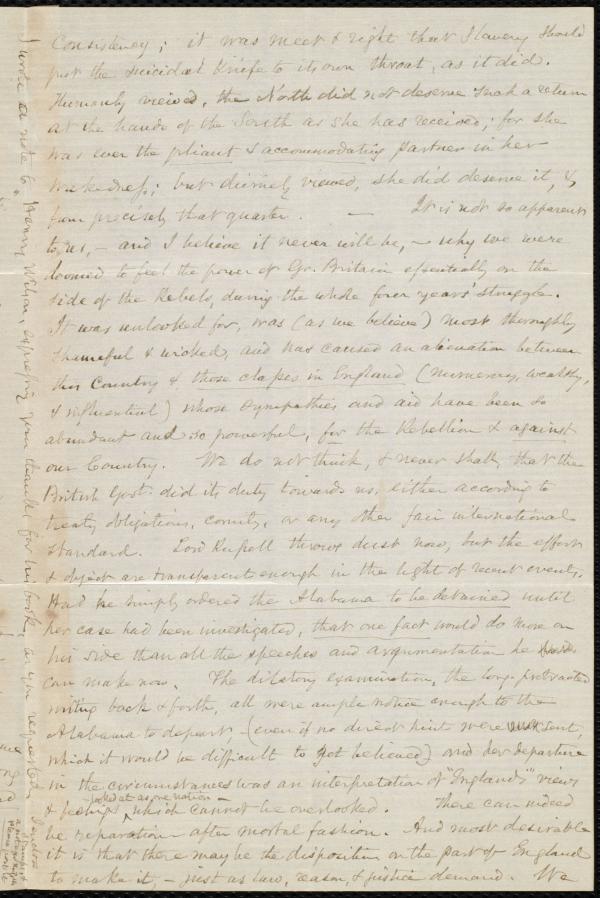 Consistency; it was meet & right that Slavery should
put the suicidal knife to its own throat, as it did.
Humanly viewed, the North did not deserve such a return
at the hands of the South as she has received; for she
was ever the pliant & accommodating partner in her
wickedness; but divinely viewed, she did deserve it, &
from precisely that quarter. — It is not so apparent
to us, – and I believe it never will be, – why we were
doomed to feel the power of Gr. Britain essentially on the
side of the Rebels, during the whole four years' struggle.
It was unlooked for, was (as we believe) most thoroughly
shameful & wicked, and has caused an alienation between
this Country & those classes in England (numerous, wealthy,
& influential) whose sympathies and aid have been so
abundant and so powerful, for the Rebellion & against
our Country. We do not think, & never shall, that the
British Govt. did its duty towards us, either according to
treaty obligations, comity, or any other fair international
standard. Lord Russell throws dust now, but the effort
& object are transparent enough in the light of recent events.
Had he simply ordered the Alabama to be detained until
her case had been investigated, that one fact would do more on
his side than all the speeches and argumentation he
can make now. The dilatory examination, the long protracted
writing back & forth, all were ample notice enough to the
Alabama to depart, – (even if no direct hint were sent,
which it would be difficult to get believed) and her departure
in the circumstances was an interpretation of "England's" views
looked at as one nation –
& feelings, which cannot be overlooked. There can indeed
be reparation after mortal fashion. And most desirable
it is that there may be the disposition on the part of England
to make it, – just as law, reason, & justice demand. We
I wrote a note to Henry Wilson, expressing your thanks for his book, as you requested.